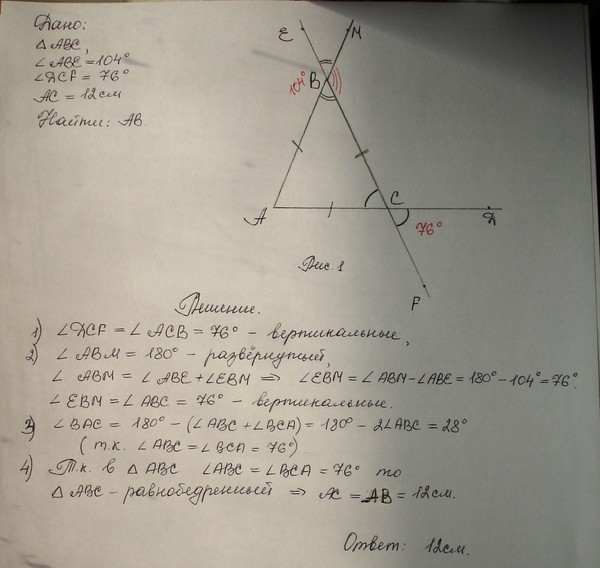 Дано:
△ ABC,
∠ABE = 104°
∠DCF = 76°
AC = 12см
Найти: AB
E
M
104°
B
A
C
D
76°
Рис. 1
F
Решение.
1) ∠DCF = ∠ACB = 76° - вертикальные,
2) ∠ABM = 180° - развёрнутый,
∠ABM = ∠ABE + ∠EBM ⇒ ∠EBM = ∠ABM - ∠ABE = 180° - 104° = 76°.
∠EBM = ∠ABC = 76° - вертикальные.
3) ∠BAC = 180° - (∠ABC + ∠BCA) = 180° - 2∠ABC = 28°
(т.к. ∠ABC = ∠BCA = 76°)
4) Т.к. в △ ABC ∠ABC = ∠BCA = 76° то
△ ABC - равнобедренный ⇒ AC = AB = 12см.
Ответ: 12см.